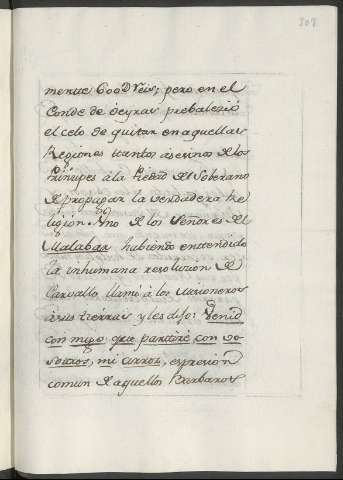 308
mente 600D reis; pero en el
Conde de Oeyras prebaleció
el celo de quitar en aquellas
Regiones tantos asesinos de los
Principes à la Piedad del Soberano
de propagar la verdadera Re
ligion. Vno de los Señores del
Malabar habiendo entendido
la inhumana resolucion de
Carvallo llamó à los Misioneros
à sus tierras y les dijo: Venid
con migo que partiré con vo
sotros, mi arroz, expresion
comun de aquellos Barbaros